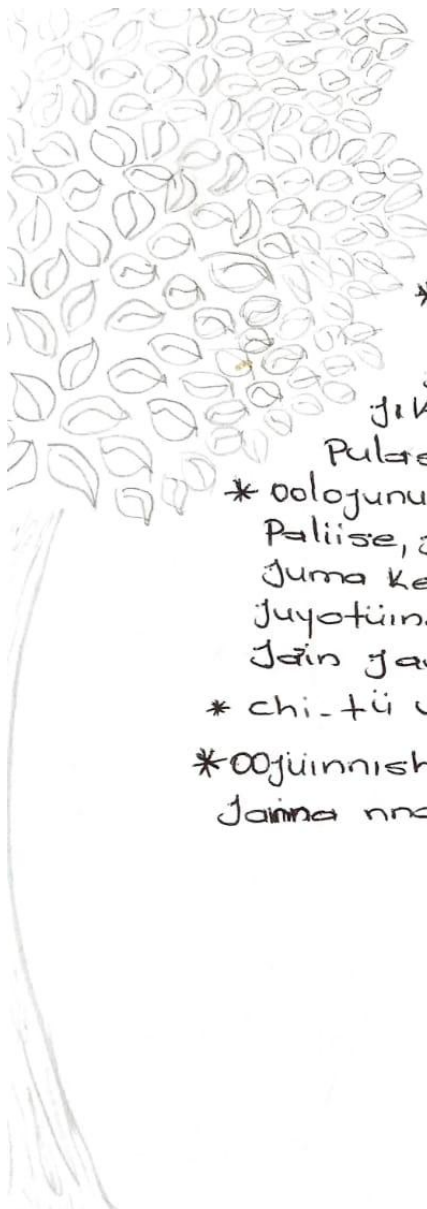 *
JIK
Pulas
* oolojunu
Paliise, j
Juma Ke
Juyotüin
Jain Ja
* chi-tü
*oojüinnish
Jainna nno